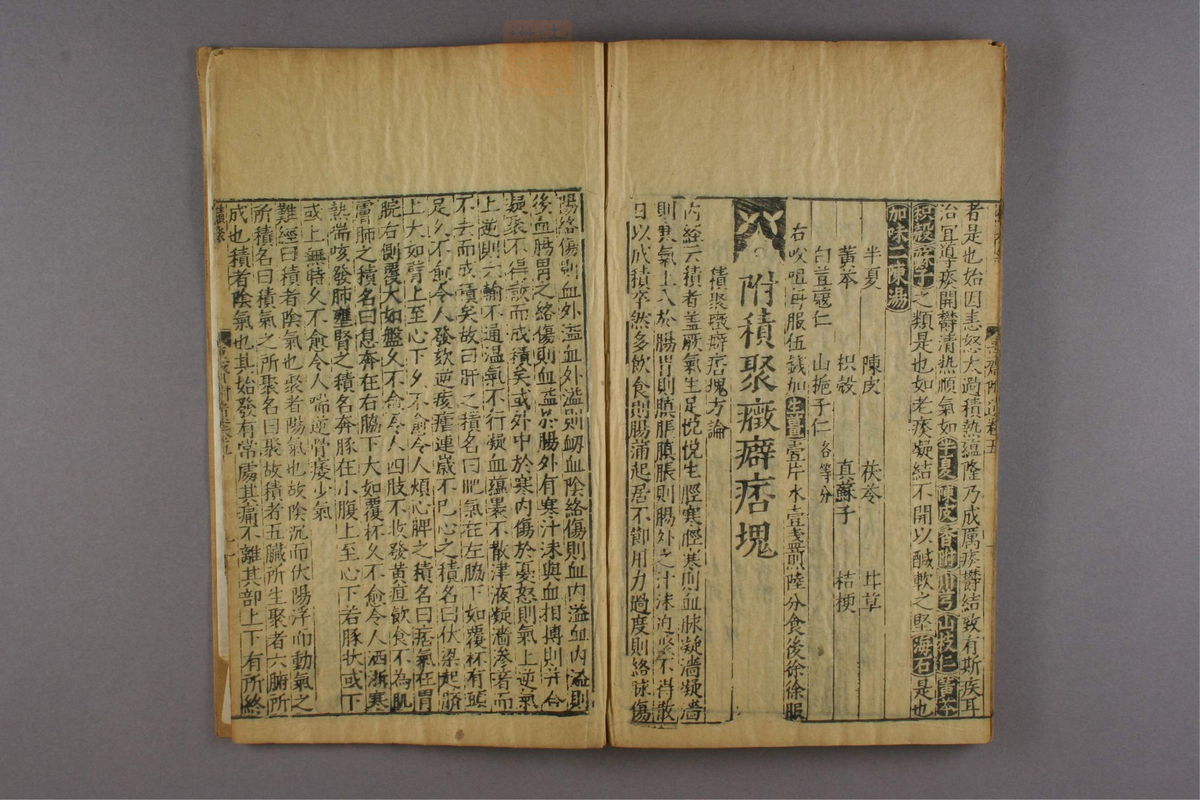 者是也始因恚怒太過積熱蘊隆乃成厲痰鬱結致有斯疾耳
治宜導痰開鬱清熱順氣如半夏陳皮香附川芎山梔仁黃芩
枳殼蘇子之類是也如老痰凝結不開以鹹軟之堅海石是也
加味二陳湯
半夏 陳皮 茯苓 甘草
黃芩 枳殼 真蘇子 桔梗
白荳蔻仁 山梔子仁各等分
右㕮咀每服伍錢加生薑壹片水壹盞煎陸分食後徐徐服
附積聚癥癖痞塊
積聚癥癖痞塊方論
內經云積者蓋厥氣生足悗悗生脛寒脛寒則血脉凝濇凝濇
則寒氣上入於腸胃則䐜脹䐜脹則腸外之汁沫迫聚不得散
日以成積卒然多飲食則腸滿起居不節用力過度則絡脉傷
陽絡傷則血外溢血外溢則衂血陰絡傷則血內溢血內溢則
後血腸胃之絡傷則血溢於腸外有寒汁沫與血相搏則并合
凝聚不得散而成積矣或外中於寒內傷於憂怒則氣上逆氣
上逆則六輸不通溫氣不行凝血蘊裹不散津液凝濇滲着而
不去而成積矣故曰肝之積名曰肥氣在左脇下如覆杯有頭
足久不愈令人發欬逆痎瘧連歲不已心之積名曰伏梁起臍
上大如臂上至心下久不愈令人煩心脾之積名曰痞氣在胃
脘右側覆大如盤久不愈令人四肢不收發黃疸飲食不為肌
膚肺之積名曰息奔在右脇下大如覆杯久不愈令人洒淅寒
熱喘咳發肺壅腎之積名奔豚在小腹上至心下若豚狀或下
或上無時久不愈令人喘逆骨痿少氣
難經曰積者陰氣也聚者陽氣也故陰沉而伏陽浮而動氣之
所積名曰積氣之所聚名曰聚故積者五臟所生聚者六腑所
成也積者陰氣也其始發有常處其痛不離其部上下有所終